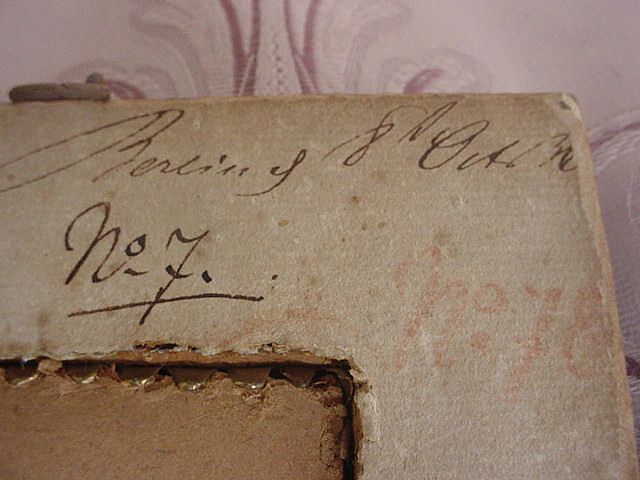 Berlin 8t Oct
No. 7.
No. 78